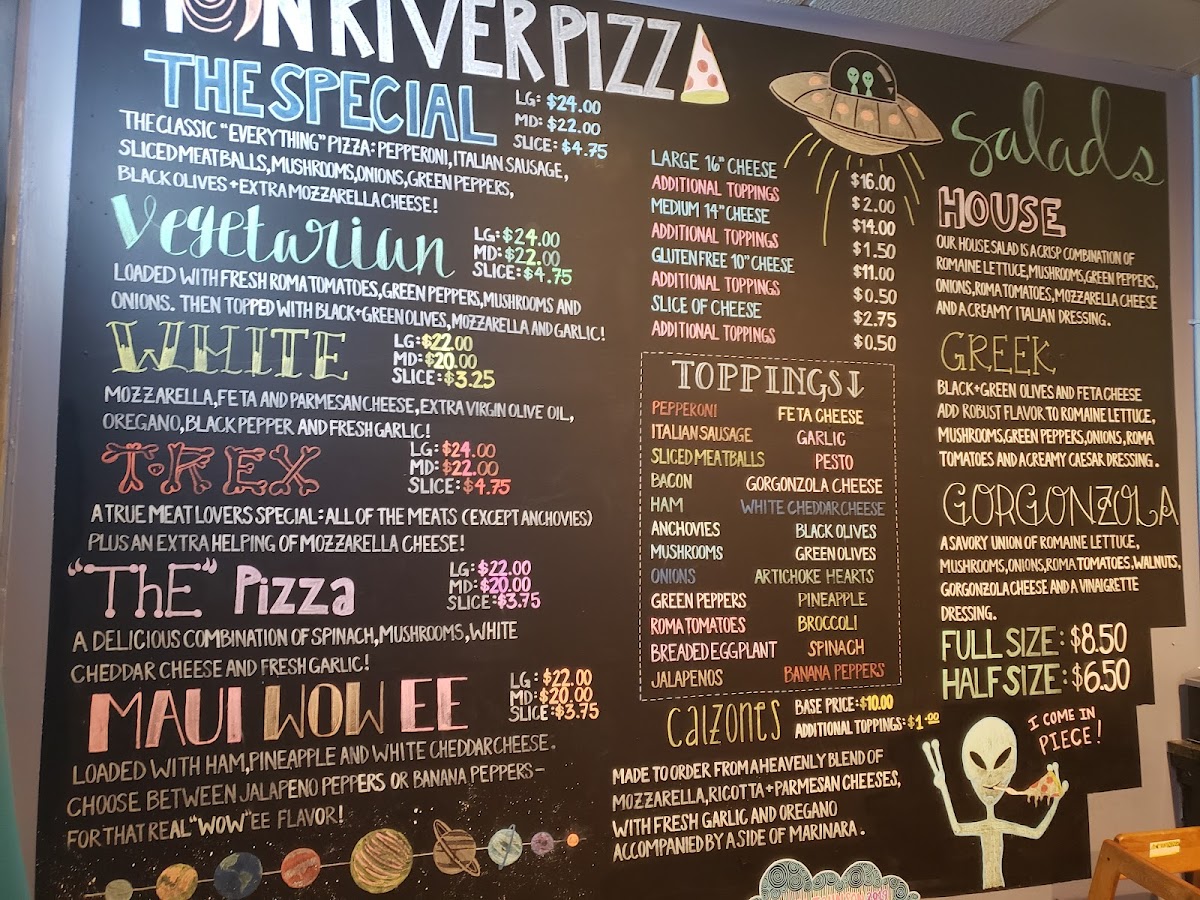 RIVER PIZZ
THE SPECIAL
LG: $24.00
MD: $22.00
SLICE: $4.75
THE CLASSIC "EVERYTHING" PIZZA: PEPPERONI, ITALIAN SAUSAGE,
SLICED MEATBALLS, MUSHROOMS, ONIONS, GREEN PEPPERS,
BLACK OLIVES + EXTRA MOZZARELLA CHEESE!
Vegetarian
LG: $24.00
MD: $22.00
SLICE: $4.75
LOADED WITH FRESH ROMA TOMATOES, GREEN PEPPERS, MUSHROOMS AND
ONIONS. THEN TOPPED WITH BLACK + GREEN OLIVES, MOZZARELLA AND GARLIC!
WHITE
LG: $22.00
MD: $20.00
SLICE: $3.25
MOZZARELLA, FETA AND PARMESAN CHEESE, EXTRA VIRGIN OLIVE OIL,
OREGANO, BLACK PEPPER AND FRESH GARLIC!
T-REX
LG: $24.00
MD: $22.00
SLICE: $4.75
A TRUE MEAT LOVERS SPECIAL: ALL OF THE MEATS (EXCEPT ANCHOVIES)
PLUS AN EXTRA HELPING OF MOZZARELLA CHEESE!
"ThE" Pizza
LG: $22.00
MD: $20.00
SLICE: $3.75
A DELICIOUS COMBINATION OF SPINACH, MUSHROOMS, WHITE
CHEDDAR CHEESE AND FRESH GARLIC!
MAUI WOW EE
LG: $22.00
MD: $20.00
SLICE: $3.75
LOADED WITH HAM, PINEAPPLE AND WHITE CHEDDAR CHEESE.
CHOOSE BETWEEN JALAPENO PEPPERS OR BANANA PEPPERS-
FOR THAT REAL "WOW"EE FLAVOR!
LARGE 16" CHEESE $16.00
ADDITIONAL TOPPINGS $2.00
MEDIUM 14" CHEESE $14.00
ADDITIONAL TOPPINGS $1.50
GLUTEN FREE 10" CHEESE $11.00
ADDITIONAL TOPPINGS $0.50
SLICE OF CHEESE $2.75
ADDITIONAL TOPPINGS $0.50
TOPPINGS↓
PEPPERONI FETA CHEESE
ITALIAN SAUSAGE GARLIC
SLICED MEATBALLS PESTO
BACON GORGONZOLA CHEESE
HAM WHITE CHEDDAR CHEESE
ANCHOVIES BLACK OLIVES
MUSHROOMS GREEN OLIVES
ONIONS ARTICHOKE HEARTS
GREEN PEPPERS PINEAPPLE
ROMA TOMATOES BROCCOLI
BREADED EGGPLANT SPINACH
JALAPENOS BANANA PEPPERS
CAlZONES
BASE PRICE: $10.00
ADDITIONAL TOPPINGS: $1.00
MADE TO ORDER FROM A HEAVENLY BLEND OF
MOZZARELLA, RICOTTA + PARMESAN CHEESES,
WITH FRESH GARLIC AND OREGANO
ACCOMPANIED BY A SIDE OF MARINARA.
Salads
HOUSE
OUR HOUSE SALAD IS A CRISP COMBINATION OF
ROMAINE LETTUCE, MUSHROOMS, GREEN PEPPERS,
ONIONS, ROMA TOMATOES, MOZZARELLA CHEESE
AND A CREAMY ITALIAN DRESSING.
GREEK
BLACK + GREEN OLIVES AND FETA CHEESE
ADD ROBUST FLAVOR TO ROMAINE LETTUCE,
MUSHROOMS, GREEN PEPPERS, ONIONS, ROMA
TOMATOES AND A CREAMY CAESAR DRESSING.
GORGONZOLA
A SAVORY UNION OF ROMAINE LETTUCE,
MUSHROOMS, ONIONS, ROMA TOMATOES, WALNUTS,
GORGONZOLA CHEESE AND A VINAIGRETTE
DRESSING.
FULL SIZE: $8.50
HALF SIZE: $6.50
I COME IN
PIECE!